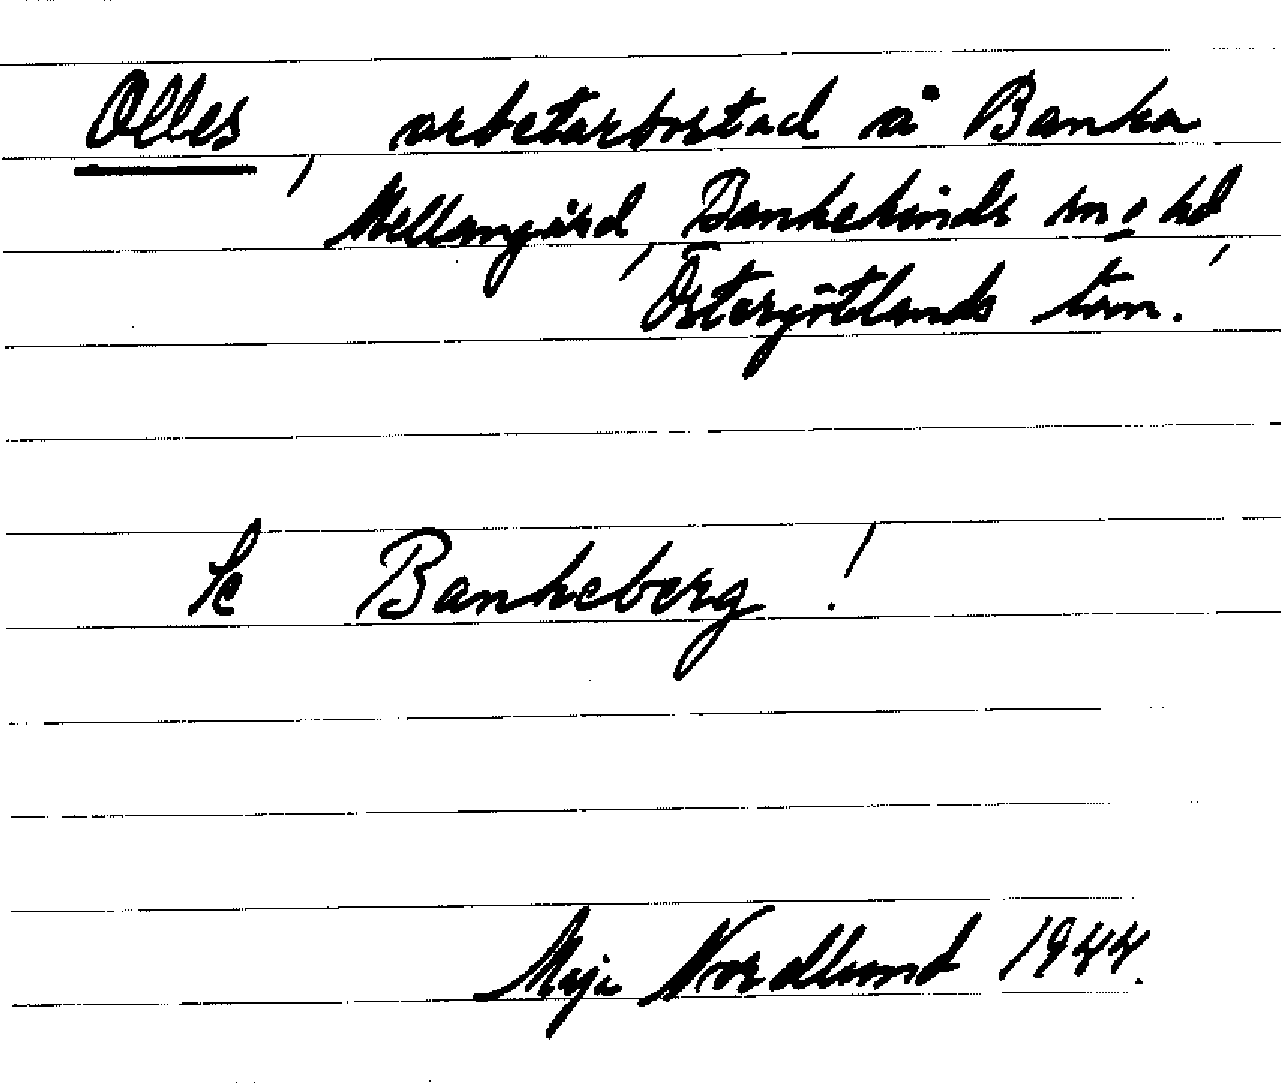 Olles, arbetarbostad å Banka
Mellangård, Bankekinds sn o hd,
Östergötlands län.
Se Bankeberg!
Maja Nordlund 1944.